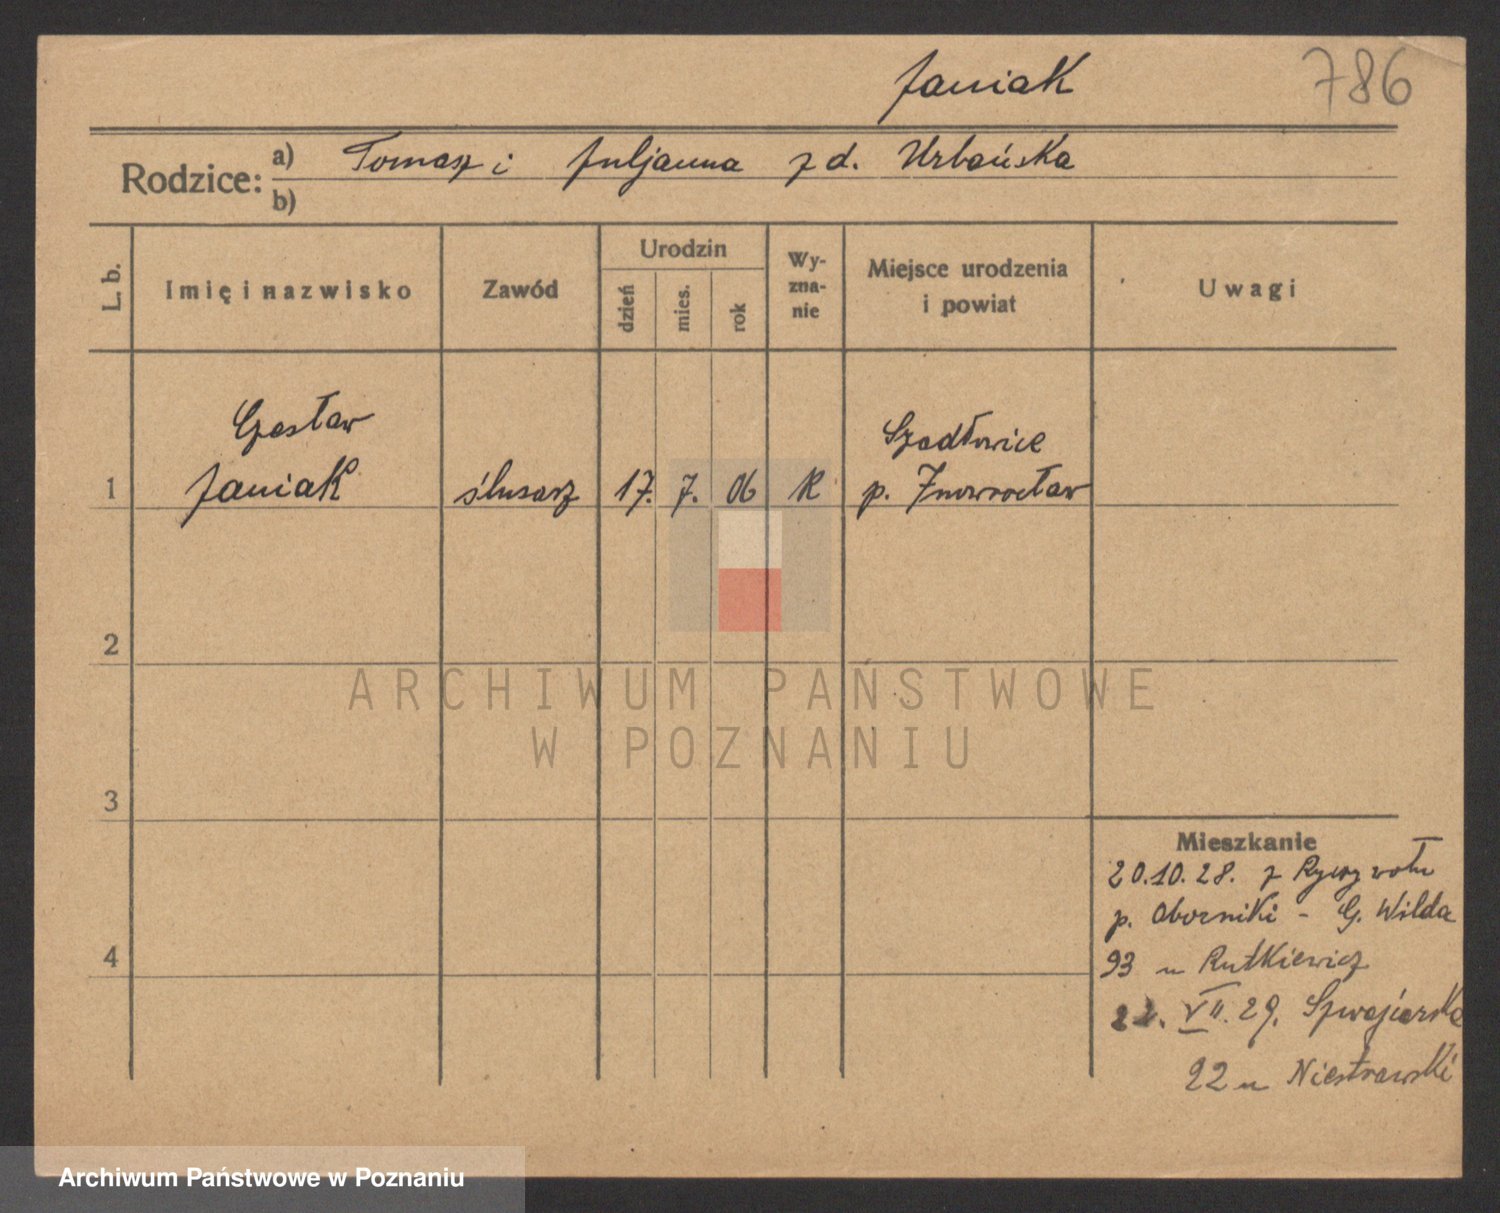 Janiak
786
Rodzice: a) Tomasz i Juljanna z d. Urbańska
b)
L. b.
Imię i nazwisko
Zawód
Urodzin
dzień
mies.
rok
Wy-
zna-
nie
Miejsce urodzenia
i powiat
Uwagi
Czesław
Szadłowice
1 Janiak ślusarz 17. 7. 06 R p. Inowrocław
2
3
4
Mieszkanie
20.10.28. z Ryczywołu
p. Oborniki - G. Wilda
93 u Rutkiewicz
22. VII. 29. Szwajcarska
22 u Niestrawski
ARCHIWUM PAŃSTWOWE
W POZNANIU
Archiwum Państwowe w Poznaniu